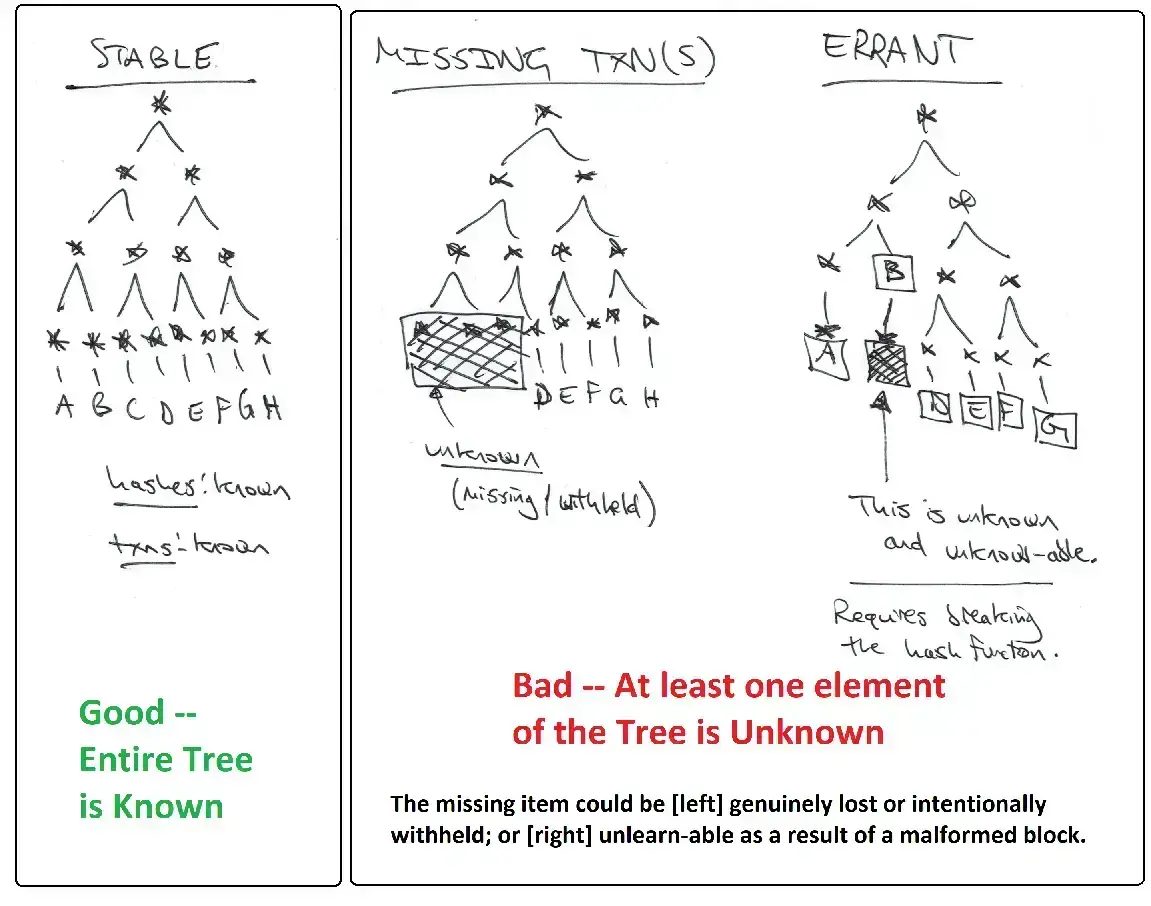 STABLE
A B C D E F G H
hashes: known
txns: known
Good --
Entire Tree
is Known
MISSING TXN(S)
D E F G H
unknown
(missing/withheld)
ERRANT
B
A
D E F G
This is unknown
and unknow-able.
Requires breaking
the hash function.
Bad -- At least one element
of the Tree is Unknown
The missing item could be [left] genuinely lost or intentionally
withheld; or [right] unlearn-able as a result of a malformed block.